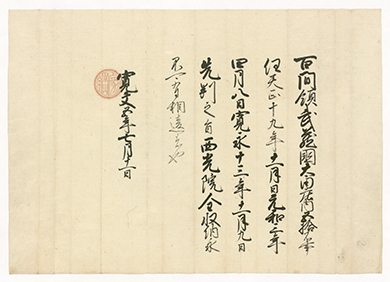 百間領武藏國太田庄五拾石
任天正十九年十一月日元和三年
四月八日寛永十三年十一月九日
先判之旨西光院全収納永
不可有相違者也
寛文五年七月十一日